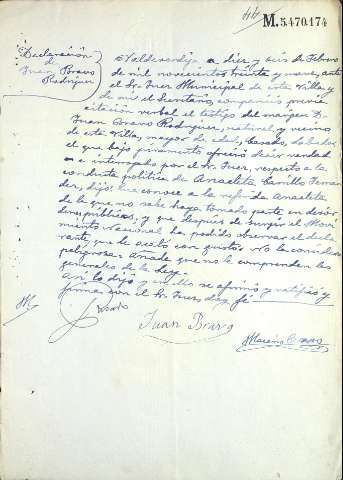 44
M.5470.174
Declaración
de
Juan Bravo
Rodriguez
Valdeverdeja a diez y seis de Febrero
de mil novecientos treinta y nueve, ante
el Sr. Juez Municipal de esta Villa, y
de mi el Secretario, comparece previa
citación verbal el testigo del margen D.
Juan Bravo Rodriguez, natural y vecino
de esta Villa, mayor de edad, Casado, labrador
el que bajo juramento ofreció decir verdad
e interrogado por el Sr. Juez, respecto a la
conducta politica de Anacleta Carrillo Fernan
dez, dijo: Que conoce a la referida Anacleta
de la que no sabe haya tomado parte en desór
denes públicos, y que después de surgir el Movi
miento Nacional ha podido observar el decla
rante, que lo acata con gusto. No la considera
peligrosa. Añade que no le comprenden las
generales de la Ley.
Asi lo dijo y en ello se afirmó y ratificó y
firma con el Sr. Juez, doy fé.
Juan Bravo